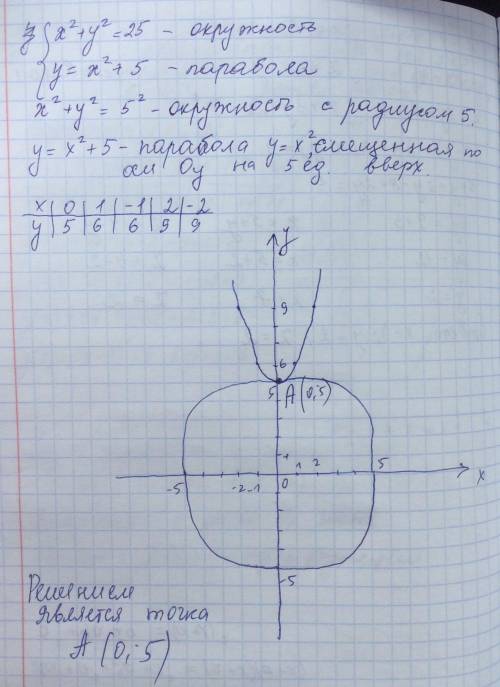 3) { x² + y² = 25 - окружность
y = x² + 5 - парабола
x² + y² = 5² - окружность с радиусом 5.
y = x² + 5 - парабола y = x², смещенная по
оси Oy на 5 ед. вверх.
x | 0 | 1 | -1 | 2 | -2
y | 5 | 6 | 6 | 9 | 9
y
9
6
5 A (0; 5)
1
-5 -2 -1 0 1 2 5 x
-5
Решением
является точка
A (0; 5)